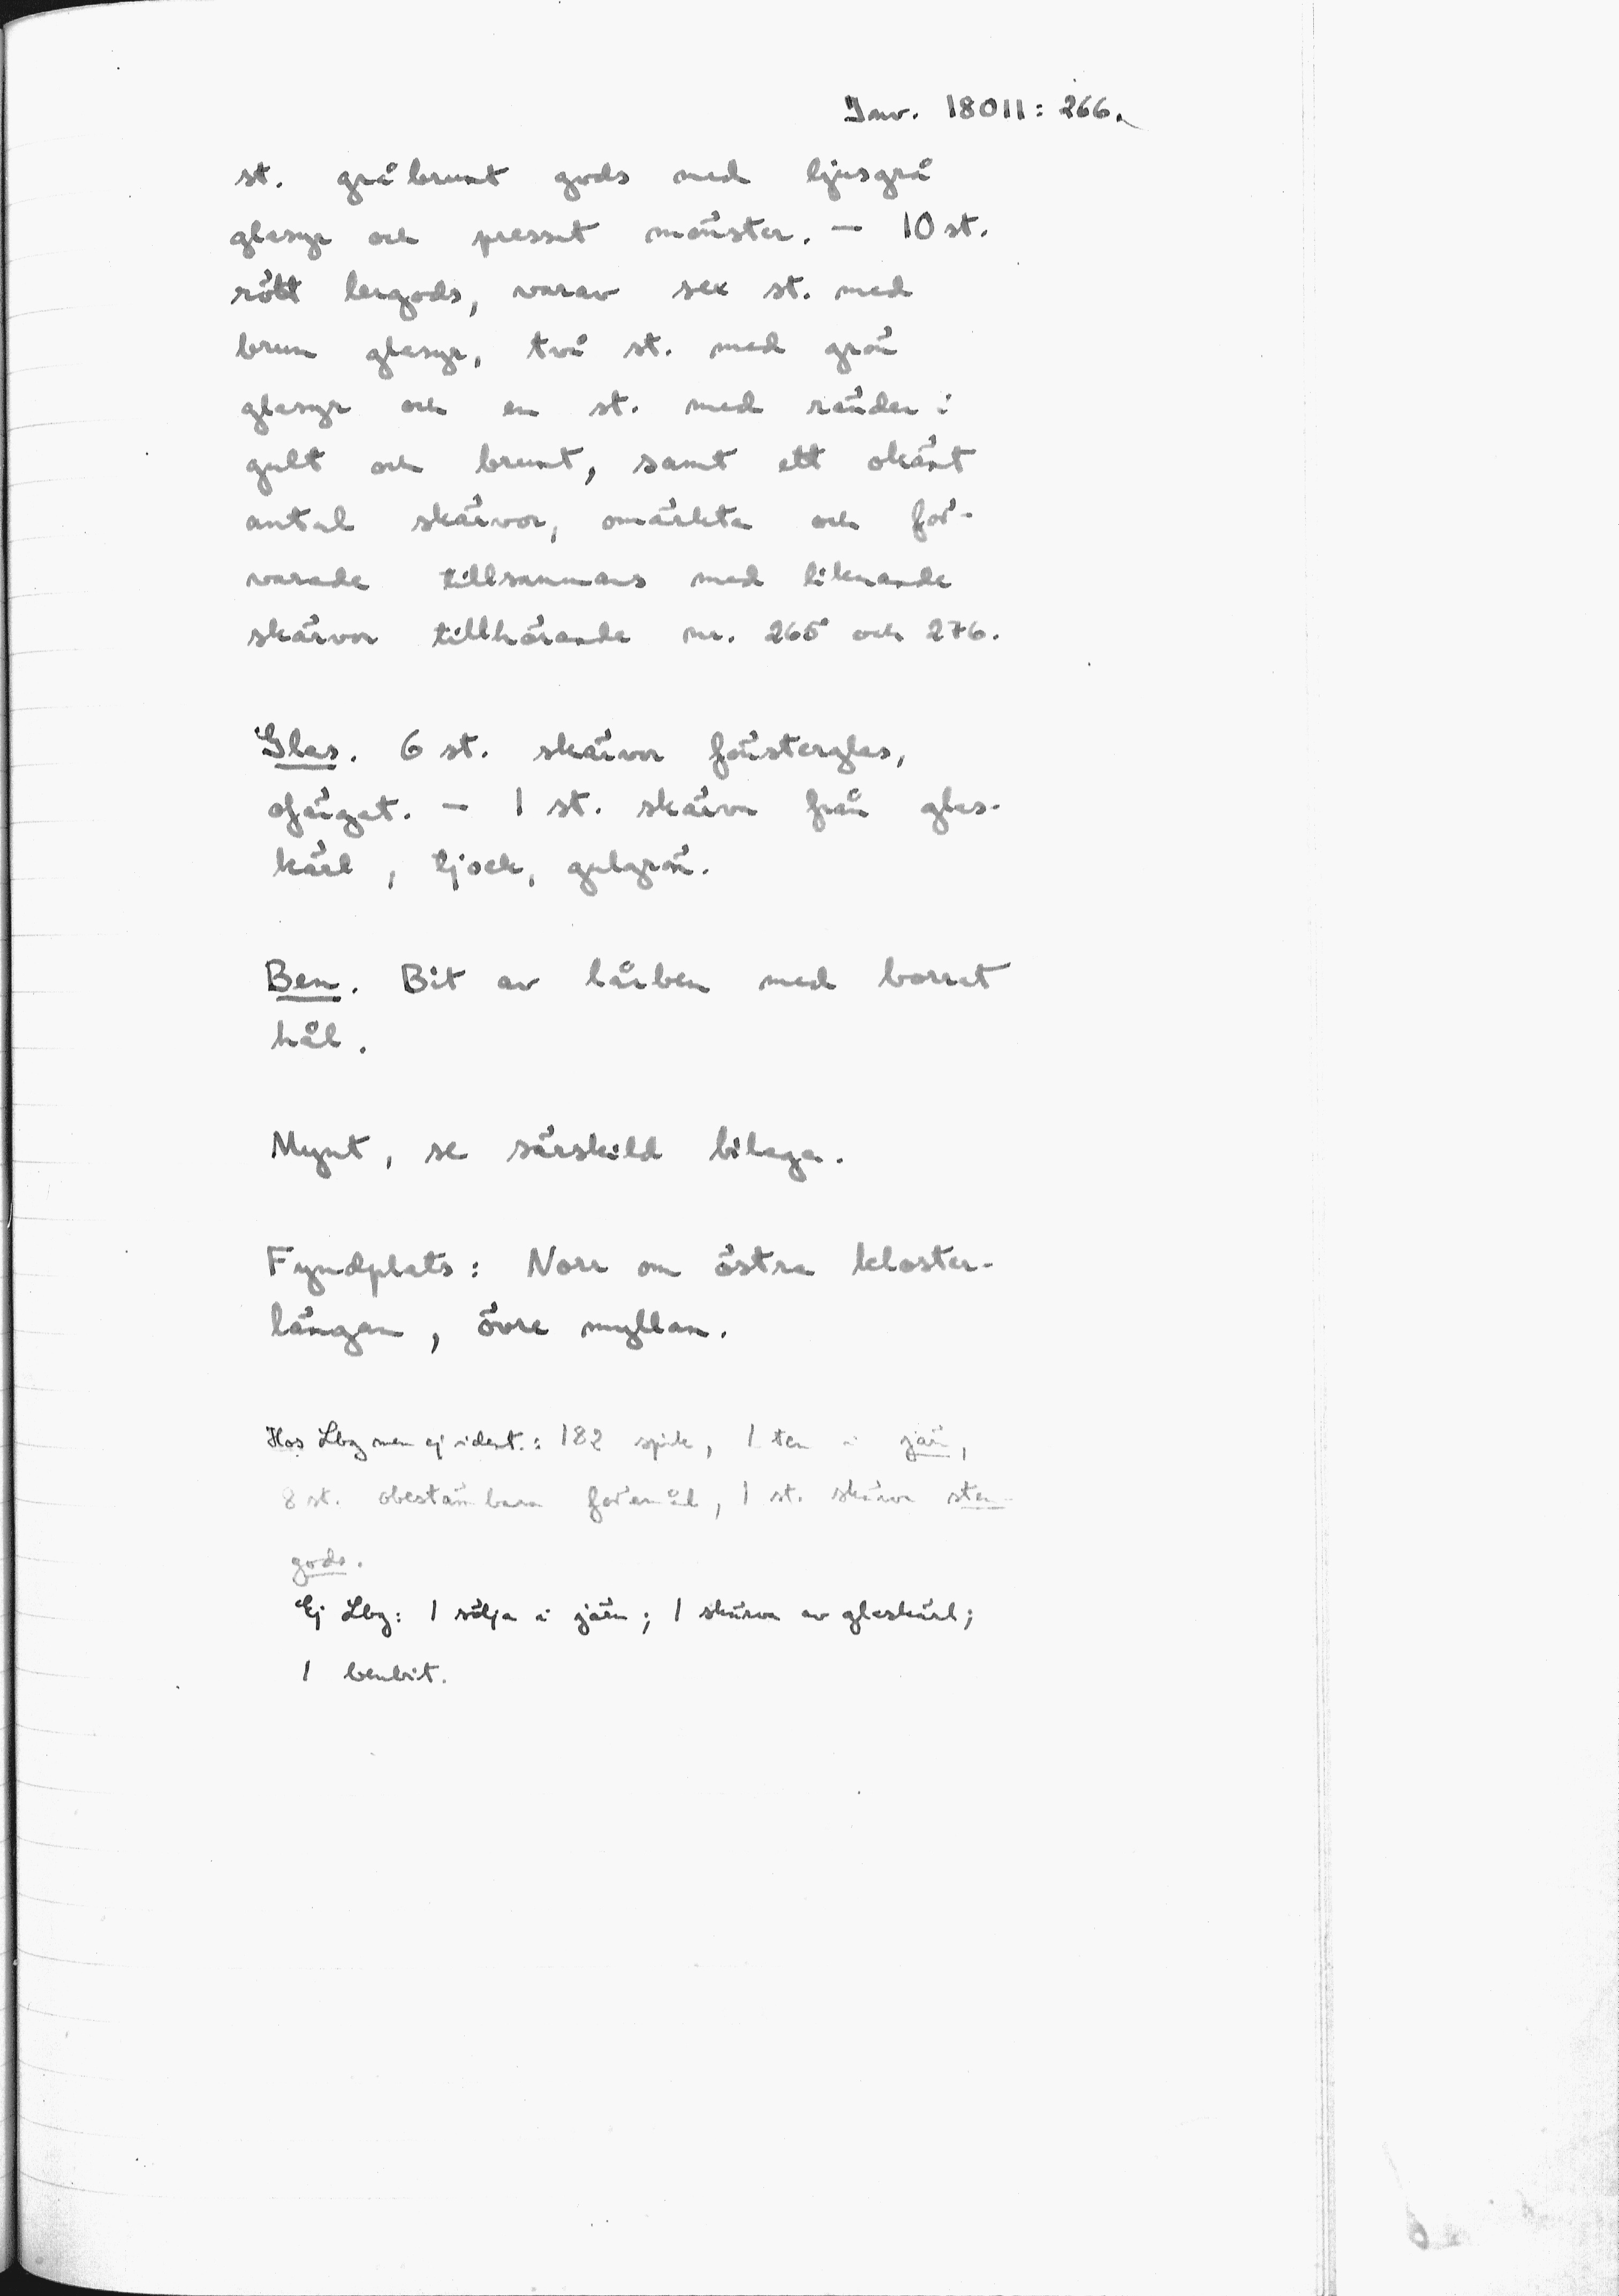 Inv. 18011: 266.
st. gråbrunt gods med ljusgrå
glasyr och pressat mönster. — 10 st.
rött lergods, varav sex st. med
brun glasyr, två st. med grön
glasyr och en st. med ränder i
gult och brunt, samt ett okänt
antal skärvor, omärkta och för-
varade tillsammans med liknande
skärvor tillhörande nr. 265 och 276.
Glas. 6 st. skärvor fönsterglas,
ofärgat. — 1 st. skärva från glas-
kärl, tjock, gulgrön.
Ben. Bit av lårben med borrat
hål.
Mynt, se särskild bilaga.
Fyndplats: Norr om östra kloster-
längan, övre myllan.
Hos Lbg men ej ident.: 182 spik, 1 ten i järn,
8 st. obestämbara föremål, 1 st. skärva sten-
gods.
Ej Lbg: 1 sölja i järn; 1 skärva av glaskärl;
1 benbit.